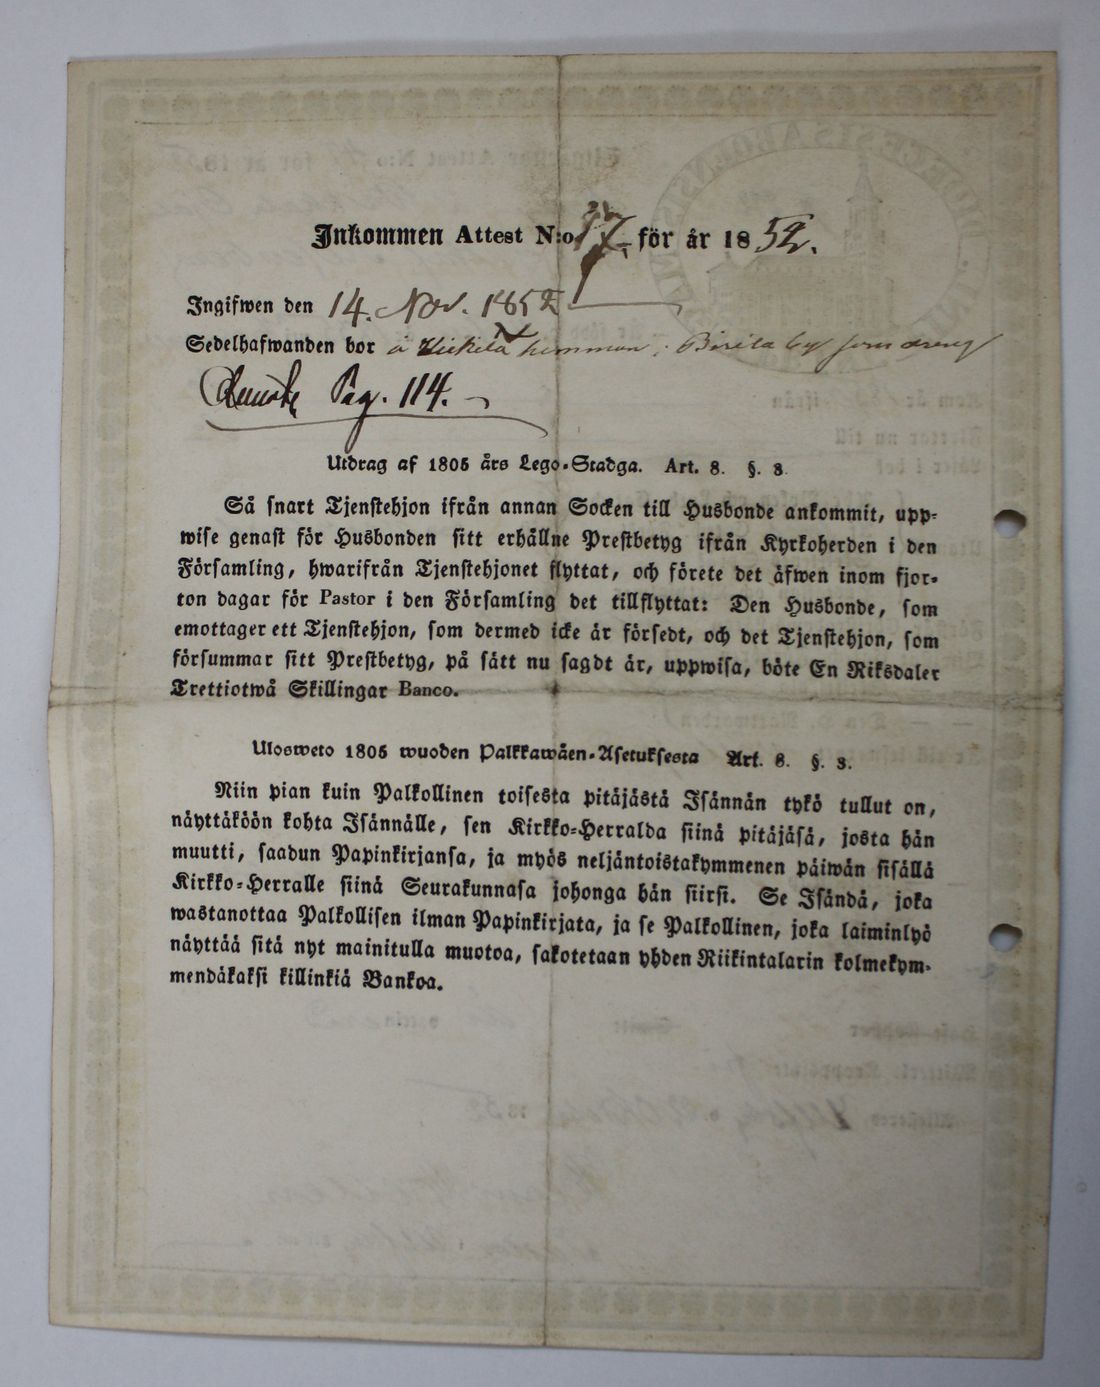 Inkommen Attest N:o 17. för år 1852.
Ingifwen den 14. Nov. 1852
Sedelhafwanden bor å hemman, by som dreng
Pag. 114.
Utdrag af 1805 års Lego-Stadga. Art. 8. §. 3.
Så snart Tjenstehjon ifrån annan Socken till Husbonde ankommit, upp-
wise genast för Husbonden sitt erhållne Prestbetyg ifrån Kyrkoherden i den
Församling, hwarifrån Tjenstehjonet flyttat, och förete det äfwen inom fjor-
ton dagar för Pastor i den Församling det tillflyttat: Den Husbonde, som
emottager ett Tjenstehjon, som dermed icke är försedt, och det Tjenstehjon, som
försummar sitt Prestbetyg, på sätt nu sagdt är, uppwisa, böte En Riksdaler
Trettiotwå Skillingar Banco.
Ulosweto 1805 wuoden Palkkawäen-Asetuksesta Art. 8. §. 3.
Niin pian kuin Palkollinen toisesta pitäjästä Isännän tykö tullut on,
näyttäköön kohta Isännälle, sen Kirkko-Herralda siinä pitäjäsä, josta hän
muutti, saadun Papinkirjansa, ja myös neljäntoistakymmenen päiwän sisällä
Kirkko-Herralle siinä Seurakunnasa johonga hän siirsi. Se Isändä, joka
wastanottaa Palkollisen ilman Papinkirjata, ja se Palkollinen, joka laiminlyö
näyttää sitä nyt mainitulla muotoa, sakotetaan yhden Riikintalarin kolmekym-
mendäkaksi killinkiä Bankoa.